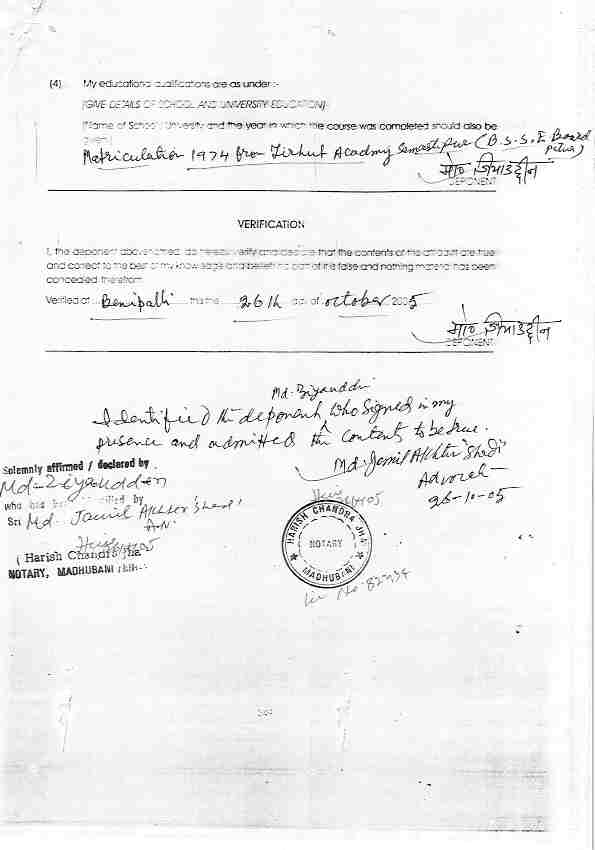 (4) My educational qualifications are as under :-
(GIVE DETAILS OF SCHOOL AND UNIVERSITY EDUCATION)
(Name of School / University and the year in which the course was completed should also be
given)
Matriculation 1974 from Tirhut Acadmy Samastipur (B.S.S.E Board
Patna)
मो० जियाउद्दीन
DEPONENT
VERIFICATION
I, the deponent abovenamed, do hereby verify and declare that the contents of the affidavit are true
and correct to the best of my knowledge and belief no part of it is false and nothing material has been
concealed therefrom
Verified at Benipatti this the 26th day of october 2005
मो० जियाउद्दीन
DEPONENT
Md. Ziyauddin
I dentified the deponent who signed in my
presence and admitted the contents to be true.
Md. Jamil Akhtar "Shadi"
Advocate
26-10-05
Solemnly affirmed / declared by
Md-Ziyaudden
who has been by
Sri Md. Jamil Akhtar 'Shadi'
(Harish Chandra Jha
NOTARY, MADHUBANI
HARISH CHANDRA JHA
NOTARY
MADHUBANI